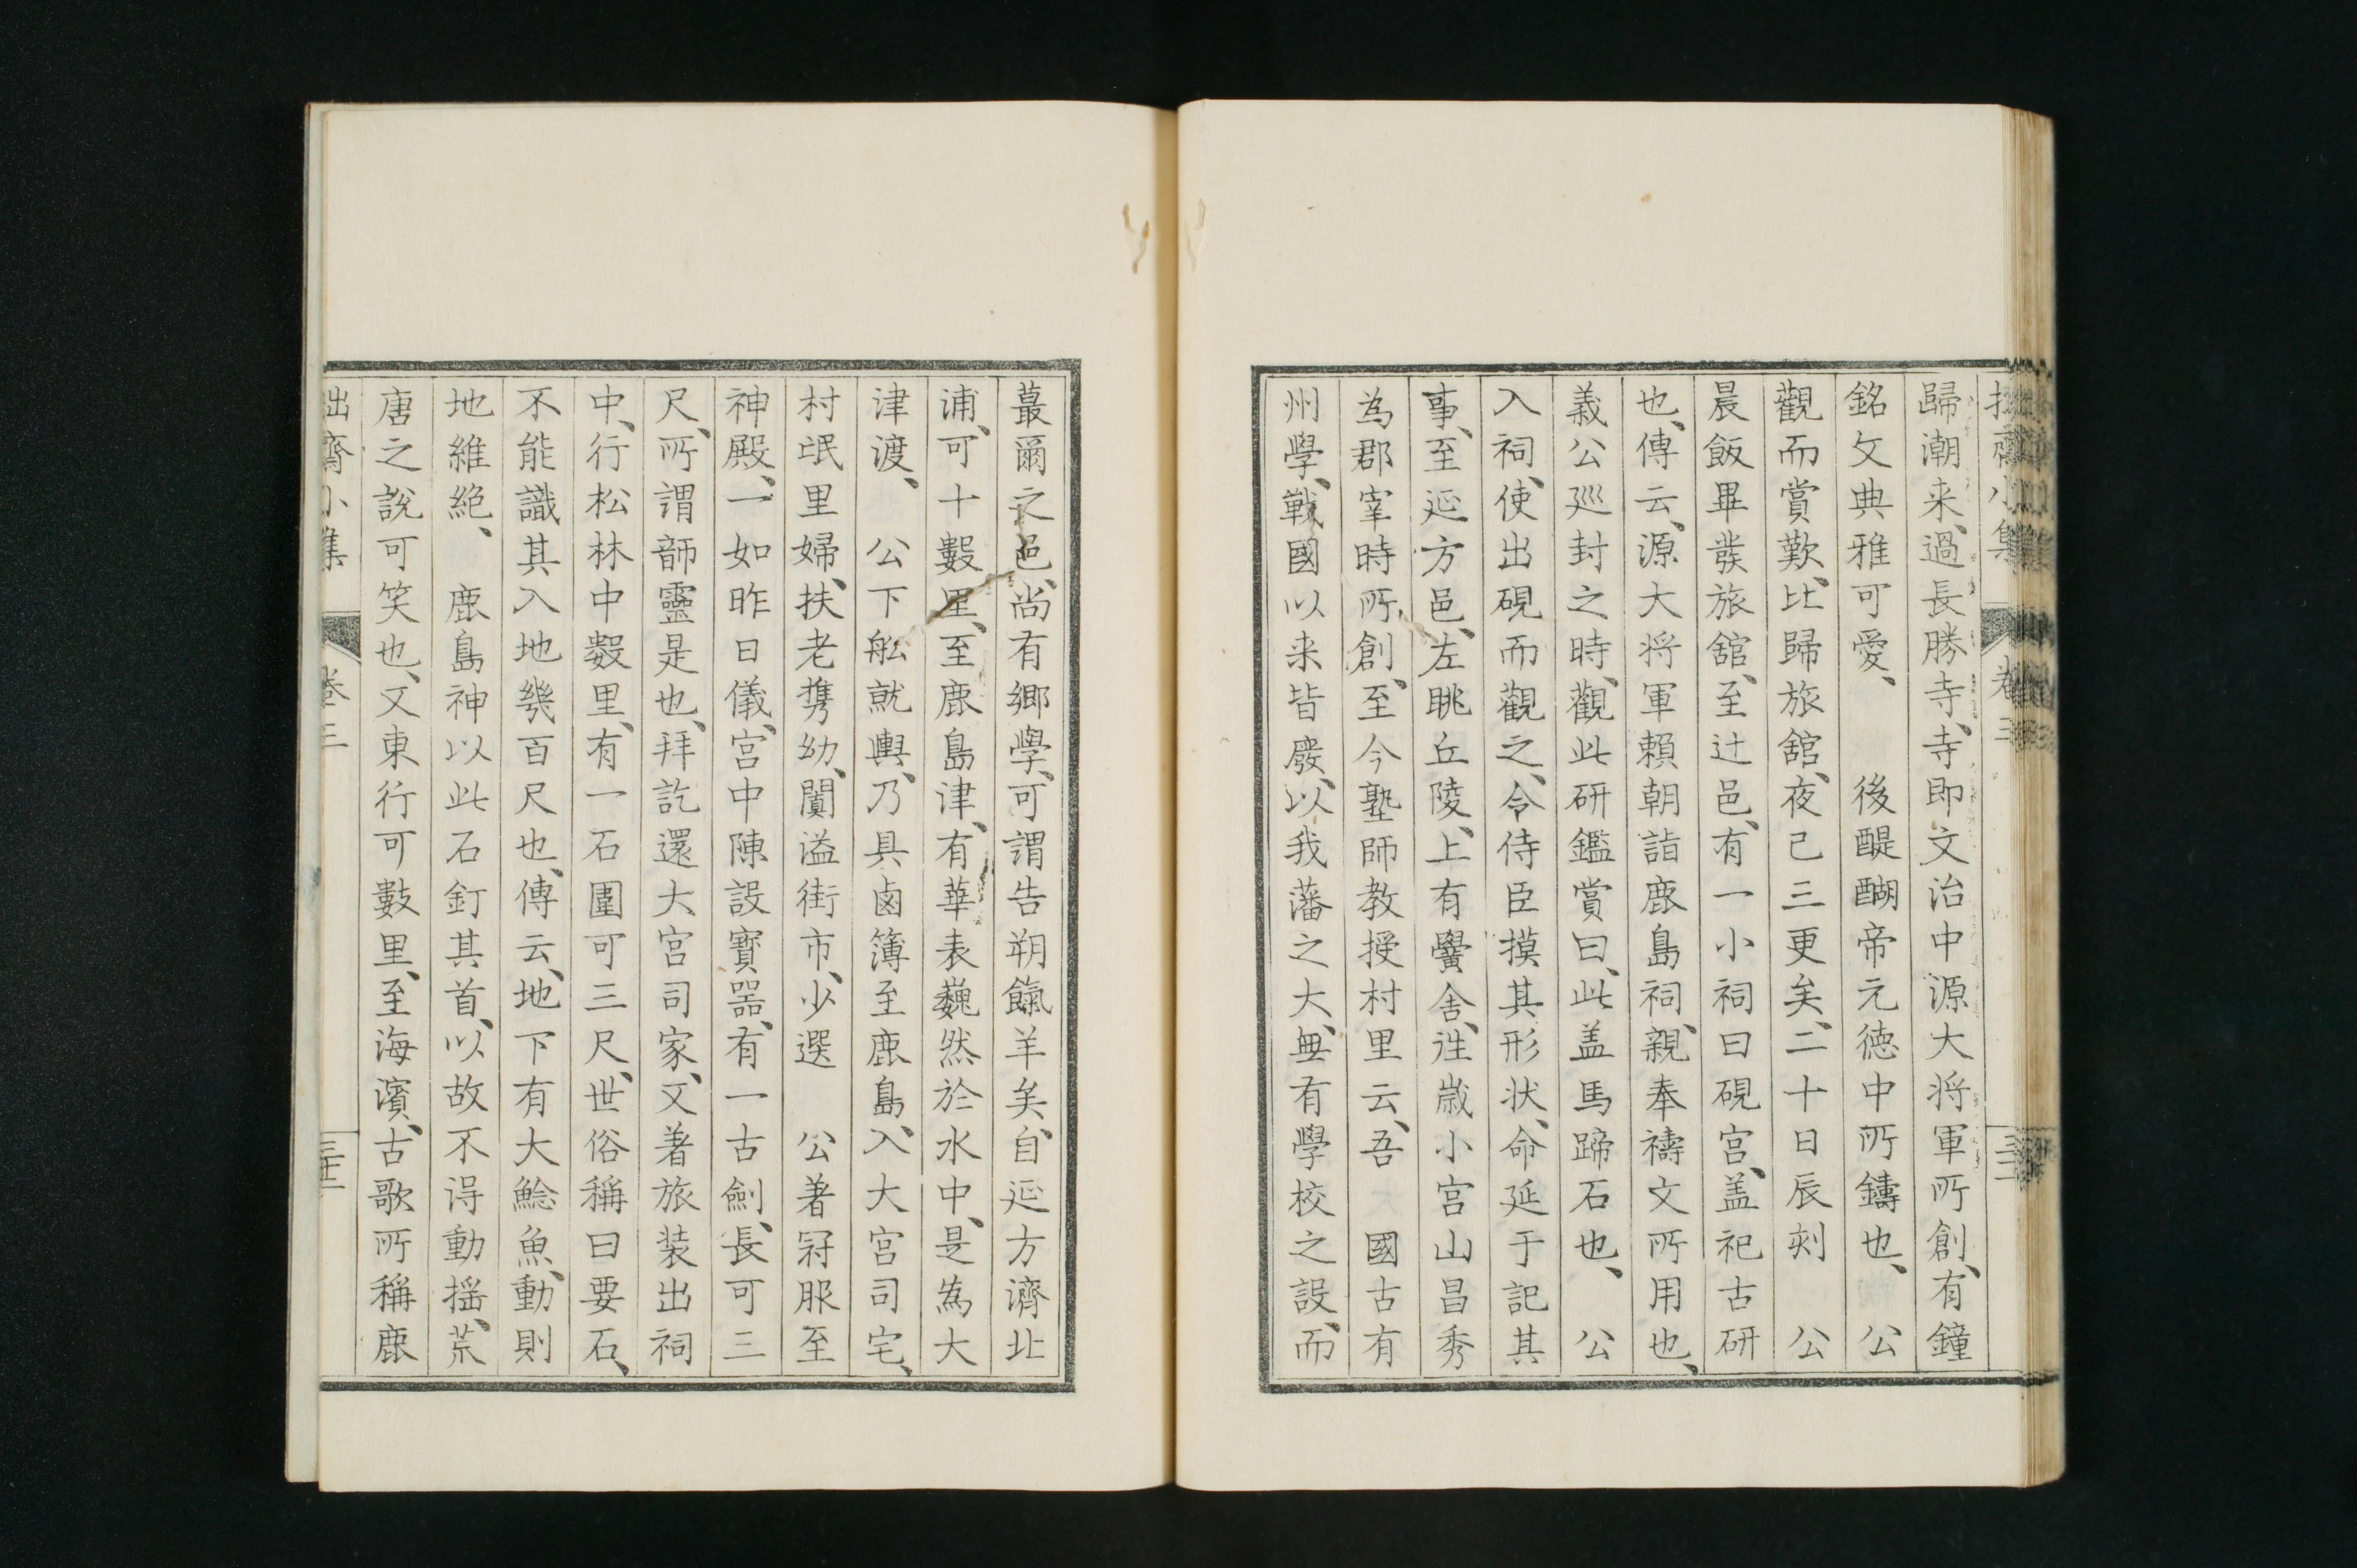 拙齋小集 卷三 三十一
歸潮来、過長勝寺、寺即文治中源大将軍所創、有鐘
銘文典雅可愛、 後醍醐帝元徳中所鑄也、 公
觀而賞歎、比歸旅舘、夜已三更矣、二十日辰刻 公
晨飯畢發旅舘、至辻邑、有一小祠曰硯宮、盖祀古研
也、傳云、源大将軍賴朝詣鹿島祠、親奉禱文所用也、
義公巡封之時、觀此研鑑賞曰、此盖馬蹄石也、 公
入祠、使出硯而觀之、令侍臣摸其形状、命延于記其
事、至延方邑、左眺丘陵、上有黌舍、往歳小宮山昌秀
為郡宰時所創、至今塾師教授村里云、吾 國古有
州學、戰國以来皆廢、以我藩之大、無有學校之設、而
蕞爾之邑、尚有郷學、可謂告朔餼羊矣、自延方濟北
浦、可十數里、至鹿島津、有華表巍然於水中、是為大
津渡、 公下船就輿、乃具鹵簿至鹿島、入大宮司宅、
村氓里婦、扶老携幼、闐溢街市、少選 公著冠服至
神殿、一如昨日儀、宮中陳設寶器、有一古劍、長可三
尺、所謂韴靈是也、拜訖還大宮司家、又著旅装出祠
中、行松林中數里、有一石圍可三尺、世俗稱曰要石、
不能識其入地幾百尺也、傳云、地下有大鯰魚、動則
地維絶、 鹿島神以此石釘其首、以故不得動揺、荒
唐之說可笑也、又東行可數里、至海濱、古歌所稱鹿
拙齋小集 卷三